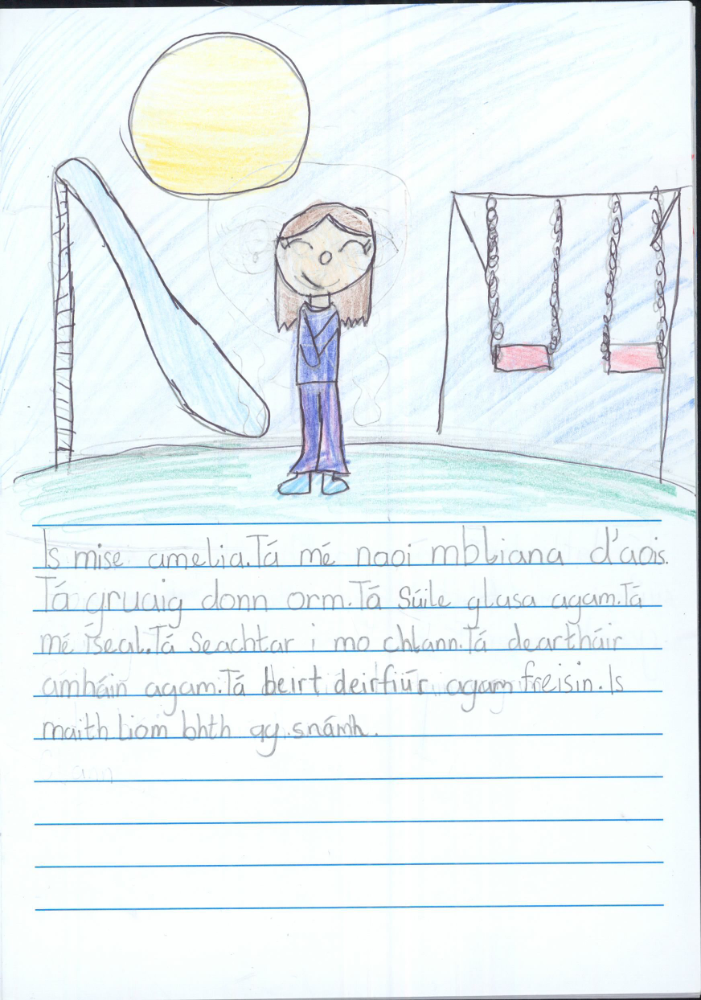 Is mise amelia.Tá mé naoi mbliana d'aois.
Tá gruaig donn orm.Tá Súile glasa agam.Tá
mé íseal.Tá Seachtar i mo chlann.Tá deartháir
amháin agam.Tá beirt deirfiúr agam freisin.Is
maith liom bhth ag snámh.